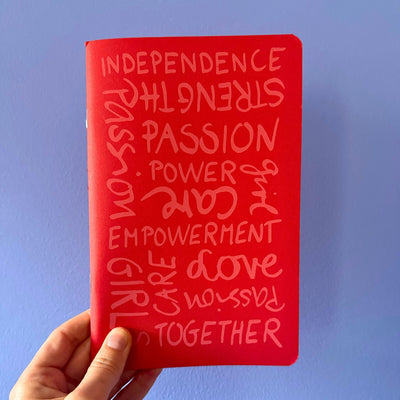 INDEPENDENCE
STRENGTH
passion
PASSION
POWER
girl
care
EMPOWERMENT
GIRLS
CARE
love
passion
TOGETHER